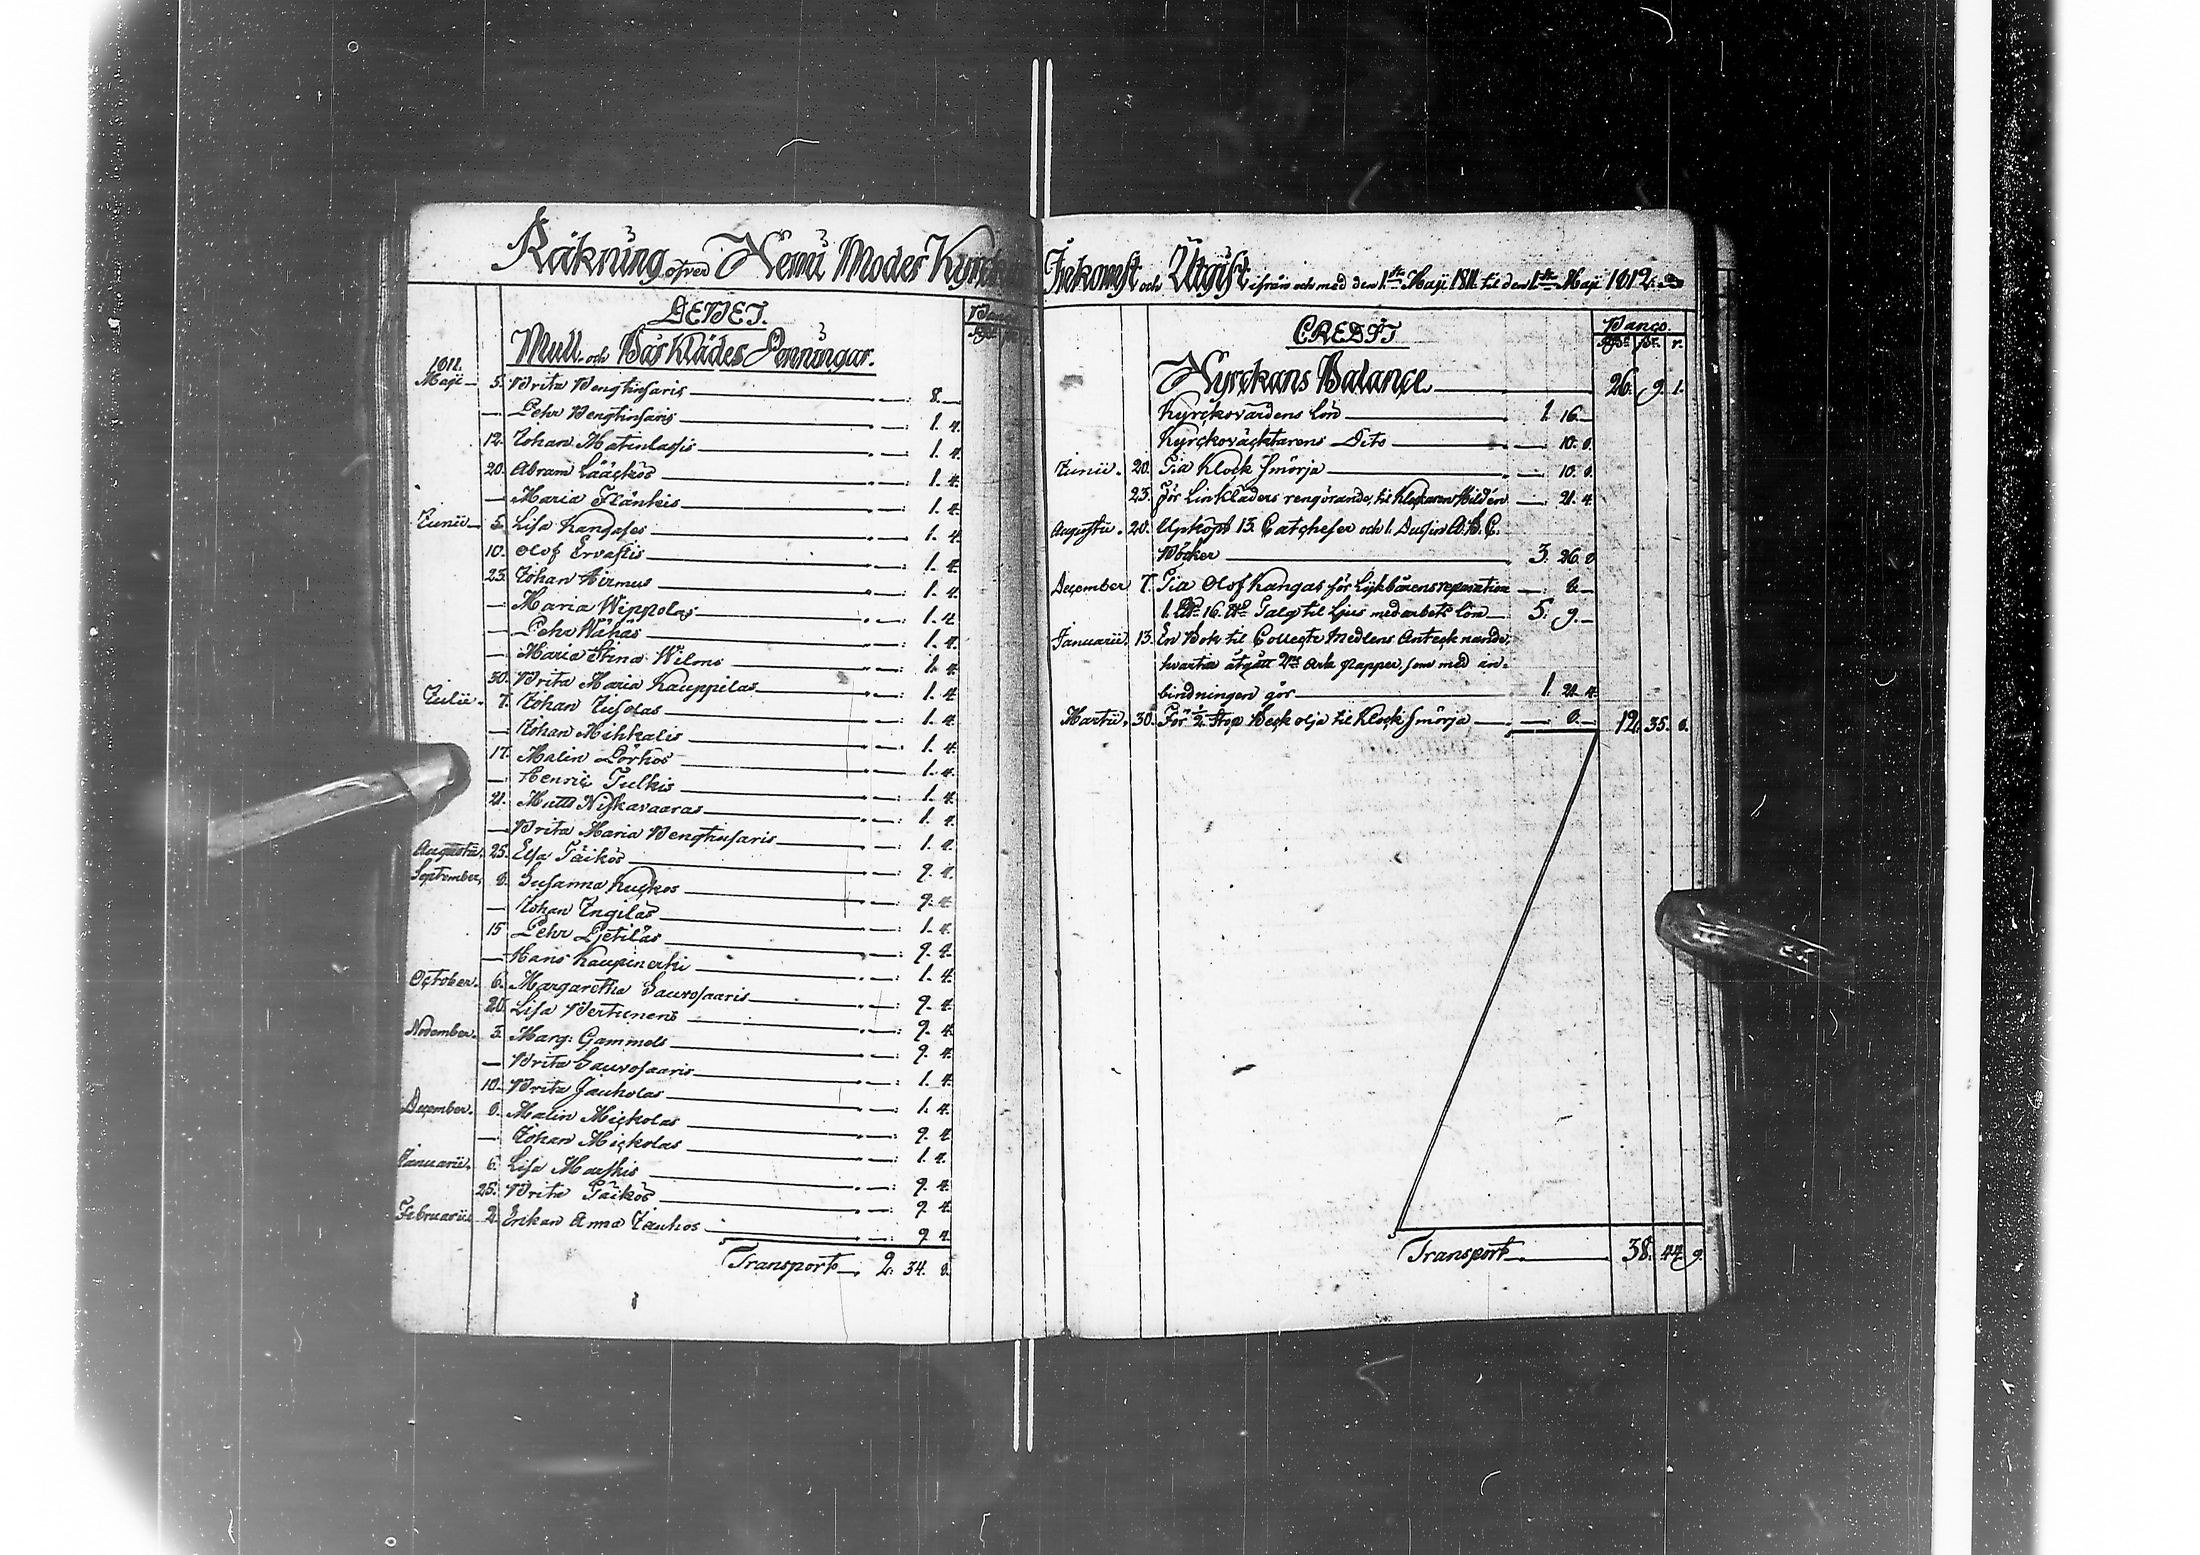 Räkning öfver Kemi Moder Kyrck
DEBET.
Banco
Mull och Bårklädes Penningar.
1811.
Maji 5. Brita Bengtinsaris 8.
Pehr Bengtinsaris 1. 4.
12. Johan Matinlassis 1. 4.
20. Abram Lääckös 1. 4.
Maria Flänkis 1. 4.
Junii 3. Lisa Kandases 1. 4.
10. Olof Ervastis 1. 4.
23. Johan Airmus 1. 4.
Maria Wippolas 1. 4.
Pehr Wähas 1. 4.
Maria Stina Wilms 1. 4.
30. Brita Maria Kauppilas 1. 4.
Julii 7. Johan Jusolas 1. 4.
Johan Mihkalis 1. 4.
17. Malin Pörhös 1. 4.
Henric Tulkis 1. 4.
21. Matts Niskavaaras 1. 4.
Brita Maria Bengtusaris 1. 4.
Augusti. 25. Elsa Päikös 2. 4.
September, 8. Susanna Kuckos 2. 4.
Johan Ingilas 1. 4.
15 Pehr Pjetilas 2. 4.
Hans Kaupinerki 1. 4.
October. 6. Margaretha Sauvosaaris 2. 4.
20. Lisa Bertunens 2. 4.
November. 3. Marg: Gammels 2. 4.
Brita Sauvosaaris 1. 4.
10. Brita Jauholas 1. 4.
December. 8. Malin Mickolas 2. 4.
Johan Mickolas 1. 4.
Januarii. 6. Lisa Marskis 2. 4.
25. Brita Päikös 2. 4.
Februarii 2. Enkan Anna Jauhos 2. 4.
Transport 2. 34. 8.
Inkomst och Utgift ifrån och med den 1ste Maji 1811 til den 1ste Maji 1812.
CREDIT
Banco.
r.
Kyrckans Balance 26. 9. 1.
Kyrckovärdens Lön 1. 16.
Kyrckoväcktarens Dito 10. 8.
Junii. 20. Til Klock Smörja 10. 8.
23. För Linkläders rengörande, til Klockaren Hildén 21. 4.
Augusti. 20. Upköpt 13. Catcheser och 1. Dusin A.B.C.
Böcker 3. 26. 8
December 7. Til Olof Kangas för Lijkbårens reparation 8.
1. L℔ 16. ℔ Talg til Ljus med arbets lön 5. 9.
Januarii. 13. En Bok til Collecte Medlens Antecknande,
hvartil åtgått Ark papper, som med in-
bindningen gör 1. 21. 4.
Martii. 30. För 1/2 Stop Beck olja til Klock Smörja 8. 12. 35. 8.
Transport 38. 44. 9.